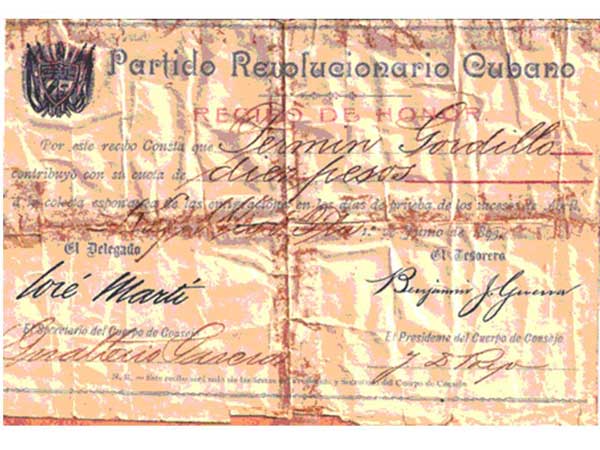 Partido Revolucionario Cubano
RECIBO DE HONOR.
Por este recibo Consta que Fermin Gordillo
contribuyó con su cuota de diez pesos
á la colecta espontanea de las emigraciones en los dias de prueba de los sucesos de Abril.
1.º de Junio de
El Delegado
El Tesorero
José Martí
Benjamin J. Guerra
El Secretario del Cuerpo de Consejo
El Presidente del Cuerpo de Consejo
Gualterio García
J D Poyo
N. B. — Este recibo será nulo sin las firmas del Presidente y Secretario del Cuerpo de Consejo